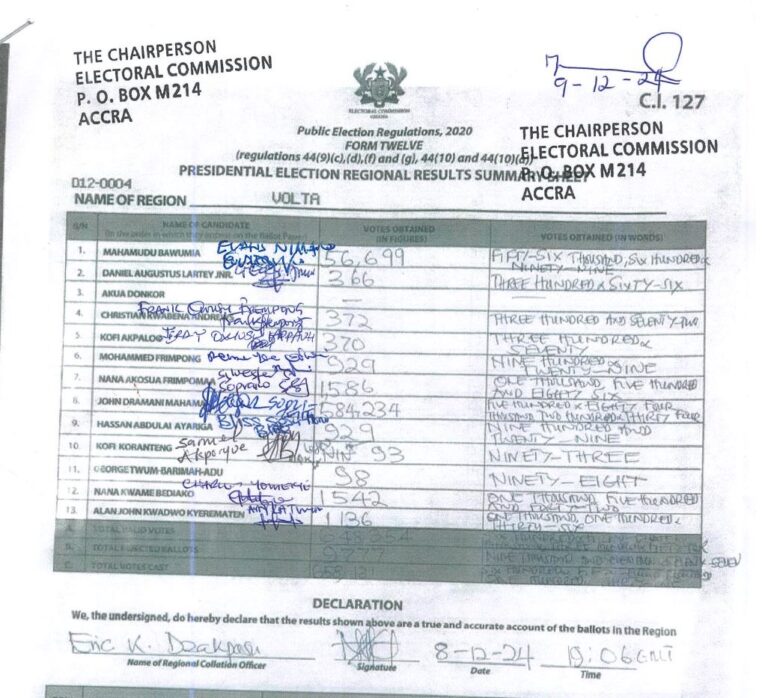 THE CHAIRPERSON
ELECTORAL COMMISSION
P. O. BOX M214
ACCRA
9-12-24
C.I. 127
ELECTORAL COMMISSION
Public Election Regulations, 2020
FORM TWELVE
(regulations 44(9)(c),(d),(f) and (g), 44(10) and 44(10)(d))
PRESIDENTIAL ELECTION REGIONAL RESULTS SUMMARY SHEET
THE CHAIRPERSON
ELECTORAL COMMISSION
P. O. BOX M214
ACCRA
D12-0004
NAME OF REGION VOLTA
S/N NAME OF CANDIDATE VOTES OBTAINED VOTES OBTAINED (IN WORDS)
(In the order in which they appear on the Ballot Paper) (IN FIGURES)
1. MAHAMUDU BAWUMIA EVANS 56,699 FIFTY-SIX THOUSAND, SIX HUNDRED & NINETY-NINE
2. DANIEL AUGUSTUS LARTEY JNR. 366 THREE HUNDRED & SIXTY-SIX
3. AKUA DONKOR —
4. CHRISTIAN KWABENA FRANK FRIMPONG 372 THREE HUNDRED AND SEVENTY-TWO
5. KOFI AKPALOO 370 THREE HUNDRED & SEVENTY
6. MOHAMMED FRIMPONG 929 NINE HUNDRED & TWENTY-NINE
7. NANA AKOSUA FRIMPOMAA 1586 ONE THOUSAND, FIVE HUNDRED AND EIGHTY SIX
8. JOHN DRAMANI MAHAMA 584,234 FIVE HUNDRED & EIGHTY FOUR THOUSAND TWO HUNDRED THIRTY FOUR
9. HASSAN ABDULAI AYARIGA 929 NINE HUNDRED AND TWENTY-NINE
10. KOFI KORANTENG 93 NINETY-THREE
11. GEORGE TWUM-BARIMAH-ADU 98 NINETY-EIGHT
12. NANA KWAME BEDIAKO 1542 ONE THOUSAND FIVE HUNDRED AND FORTY-TWO
13. ALAN JOHN KWADWO KYEREMATEN 1136 ONE THOUSAND, ONE HUNDRED & THIRTY-SIX
TOTAL VALID VOTES
B. TOTAL REJECTED BALLOTS 9777
C. TOTAL VOTES CAST
DECLARATION
We, the undersigned, do hereby declare that the results shown above are a true and accurate account of the ballots in the Region
Eric K. 8-12-24 19:06GMT
Name of Regional Collation Officer Signature Date Time